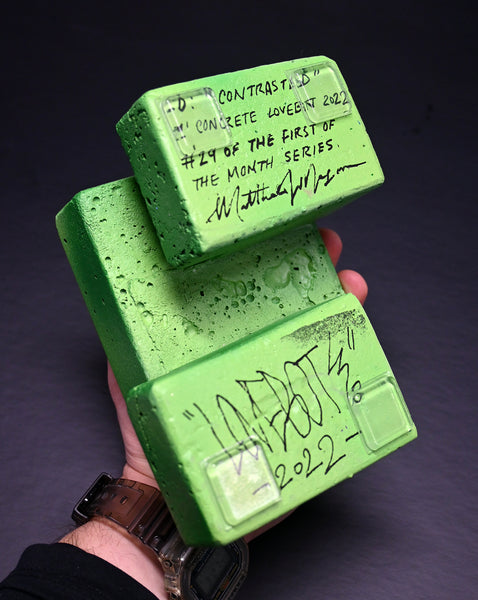 "CONTRASTED"
CONCRETE LOVEBOT 2022
#29 OF THE FIRST OF
THE MONTH SERIES.
"LOVEBOT"
-2022-